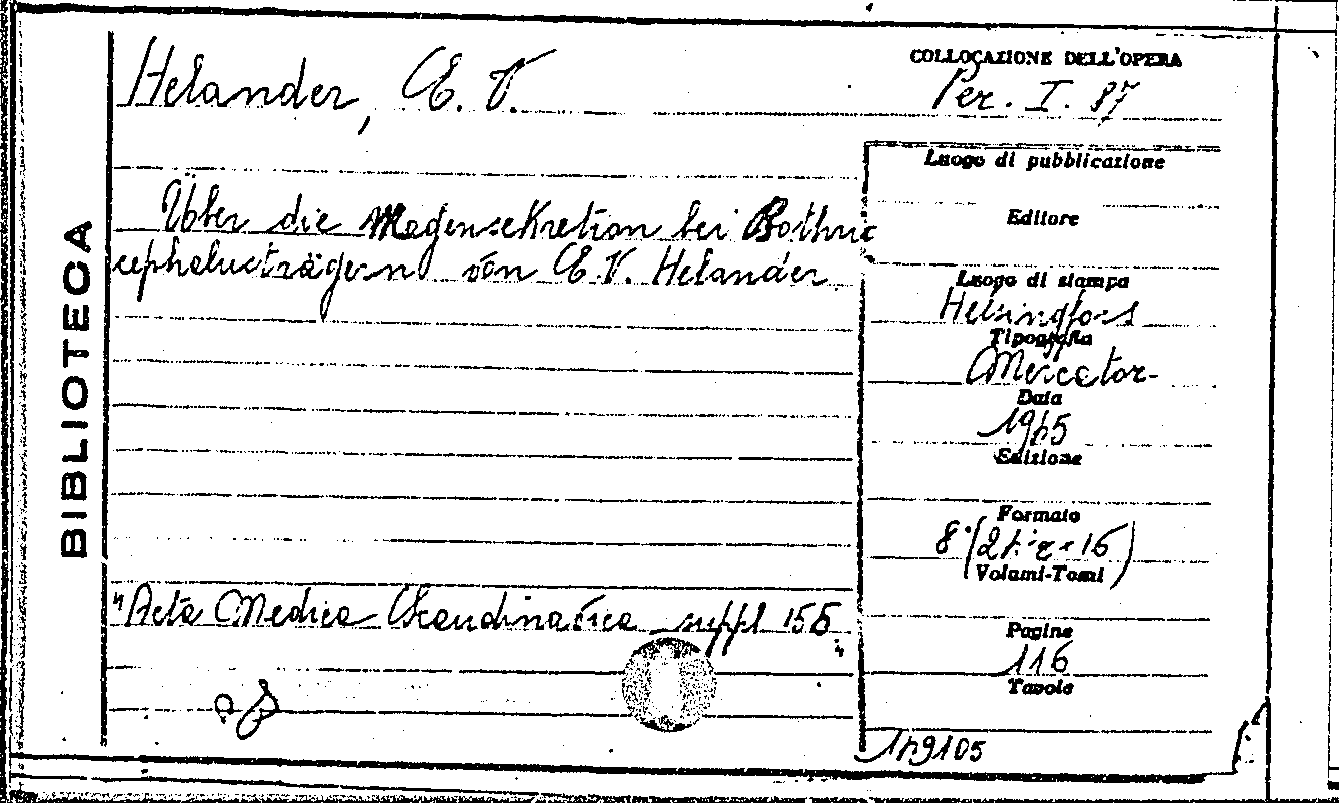 BIBLIOTECA
Helander, E. V.
COLLOCAZIONE DELL'OPERA
Per. I. 87
Über die Magensekretion bei Bothrio
cephalusträgern von E. V. Helander
Luogo di pubblicazione
Editore
Luogo di stampa
Helsingfors
Tipografia
Mercator
Data
1945
Edizione
Formato
8° (24 × 16)
Volumi-Tomi
Pagine
116
Tavole
"Acta Medica Scandinavica suppl 156."
149105